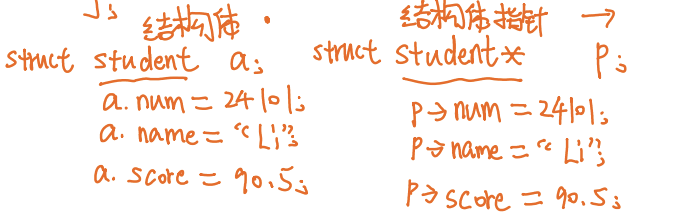 };
结构体 ·
struct student a;
a. num = 24101;
a. name = "Li";
a. score = 90.5;
结构体指针 →
struct student* p;
p→num = 24101;
p→name = "Li";
p→score = 90.5;